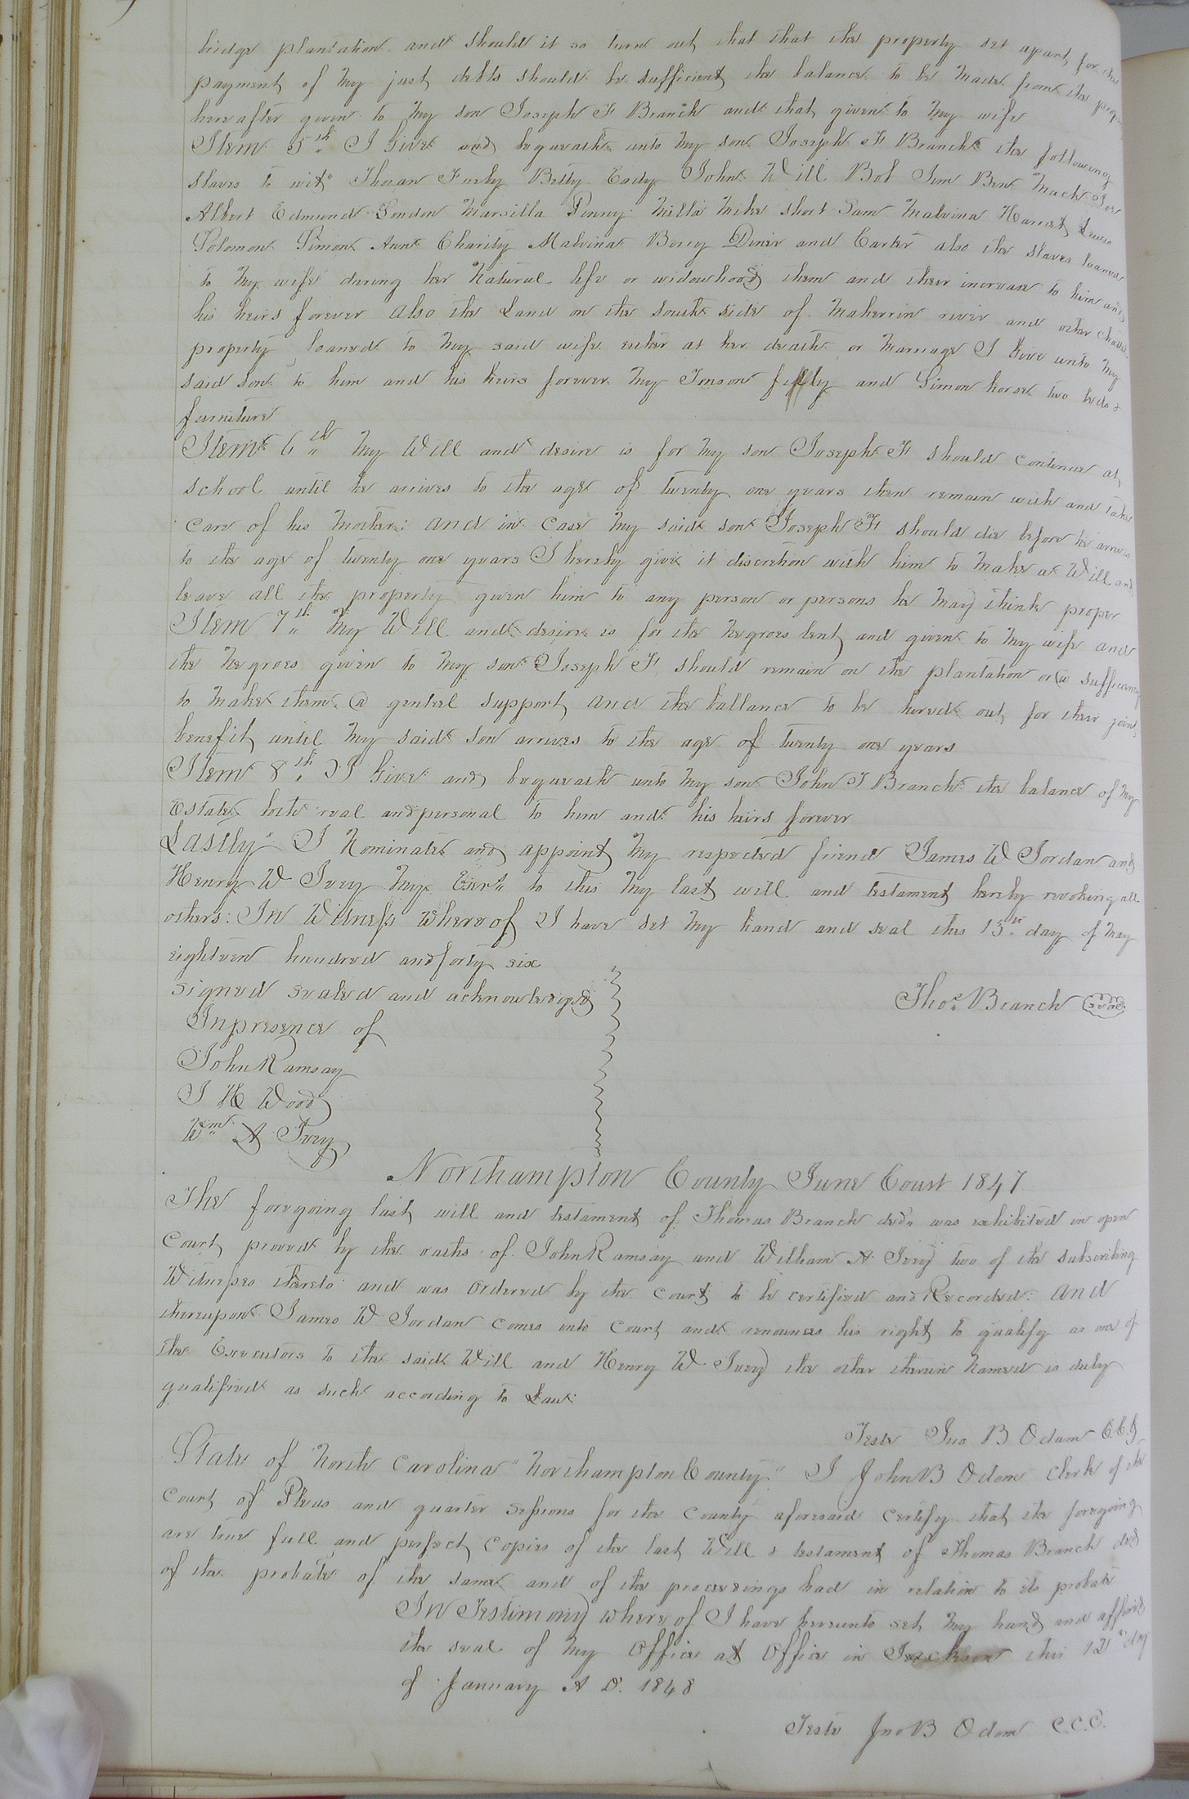 bridge plantation and should it so turn out that that the property set apart for the
payment of my just debts should be sufficient the balance to be made from the prop
here after given to my son Joseph F Branch and that given to my wife
Item 5th I Give and bequeath unto my son Joseph F Branch the following
slaves to wit Betty Eady John Will Bob Jim Ben Mack
Albert Edmund London Marsilla Penny Milla Mike short Sam Malvina Harriet
Solomon Simon Aunt Charity Malvina Berry Diner and Carter also the slaves loaned
to my wife during her Natural life or widowhood them and their increase to him and
his heirs forever Also the Land on the south side of Maherrin river and other
property loaned to my said wife either at her death or Marriage I Give unto my
said son to him and his heirs forever my filly and Simon horse two beds &
furniture
Item 6th My Will and desire is for my son Joseph F should continue at
school until he arrives to the age of twenty one years then remain with and take
care of his mother: And in case my said son Joseph F should die before he arrives
to the age of twenty one years I hereby give it discretion with him to make a Will and
leave all the property given him to any person or persons he may think proper
Item 7th My Will and desire is for the Negroes lent and given to my wife and
the Negroes given to my son Joseph F should remain on the plantation or a sufficiency
to make them a genteel support and the ballance to be hired out for their joint
benefit until my said son arrives to the age of twenty one years
Item 8th I Give and bequeath unto my son John F Branch the balance of my
Estate both real and personal to him and his heirs forever
Lastly I Nominate and appoint my respected friend James W Jordan and
Henry W Ivey my Exers to this my last will and testament hereby revoking all
others: In Witness whereof I have set my hand and seal this 15th day of May
eighteen hundred and forty six
Signed sealed and acknowledged
Thos Branch seal
In presence of
John Ramsay
J H Wood
Wm A Ivey
Northampton County June Court 1847
The foregoing last will and testament of Thomas Branch decd was exhibited in open
Court proved by the oaths of John Ramsay and William A Ivey two of the subscribing
Witnesses thereto and was ordered by the court to be certified and Recorded: And
thereupon James W Jordan comes into Court and renounces his right to qualify as one of
the Executors to the said Will and Henry W Ivey the other therein Named is duly
qualified as such according to Law:
Teste Jno B Odom C.C.C.
State of North Carolina "Northampton County" I John B Odom Clerk of the
Court of Pleas and quarter sessions for the County aforesaid certify that the foregoing
are true full and perfect copies of the last Will & testament of Thomas Branch decd
of the probate of the same and of the proceedings had in relation to its probate
In Testimony whereof I have hereunto set my hand and affixed
the seal of my Office at Office in Jackson this 12th day
of January A D. 1848
Teste Jno B Odom C.C.C.